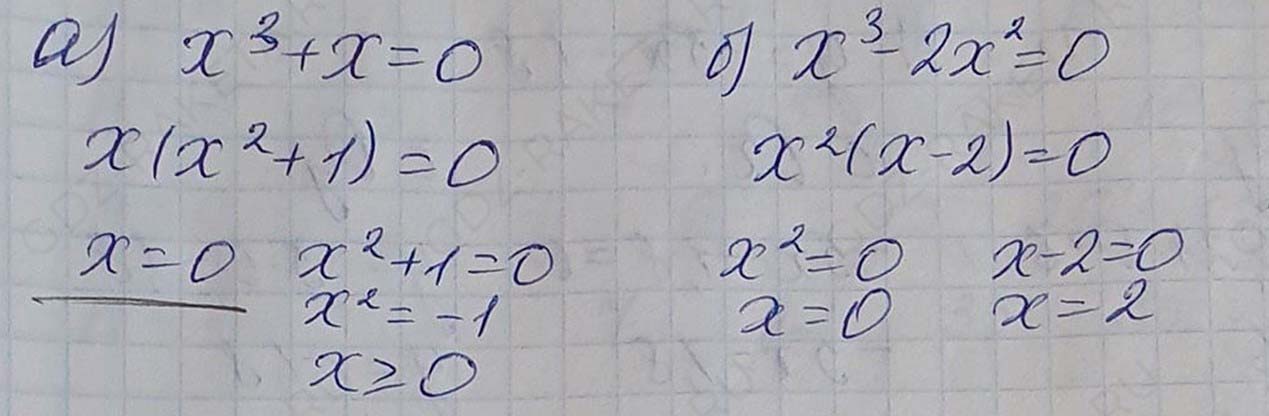 а) x³+x=0
x(x²+1)=0
x=0 x²+1=0
x²=-1
x≥0
б) x³-2x²=0
x²(x-2)=0
x²=0 x-2=0
x=0 x=2